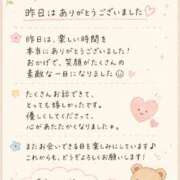 昨日はありがとうございました
昨日は、楽しい時間を
本当にありがとうございました!
おかげで、笑顔がたくさんの
素敵な一日になりました
たくさんお話できて、
とっても嬉しかったです。
優しくしてくださって、
心があたたかくなりました。
またお会いできる日を楽しみにしています♪
これからも、どうぞよろしくお願いします。